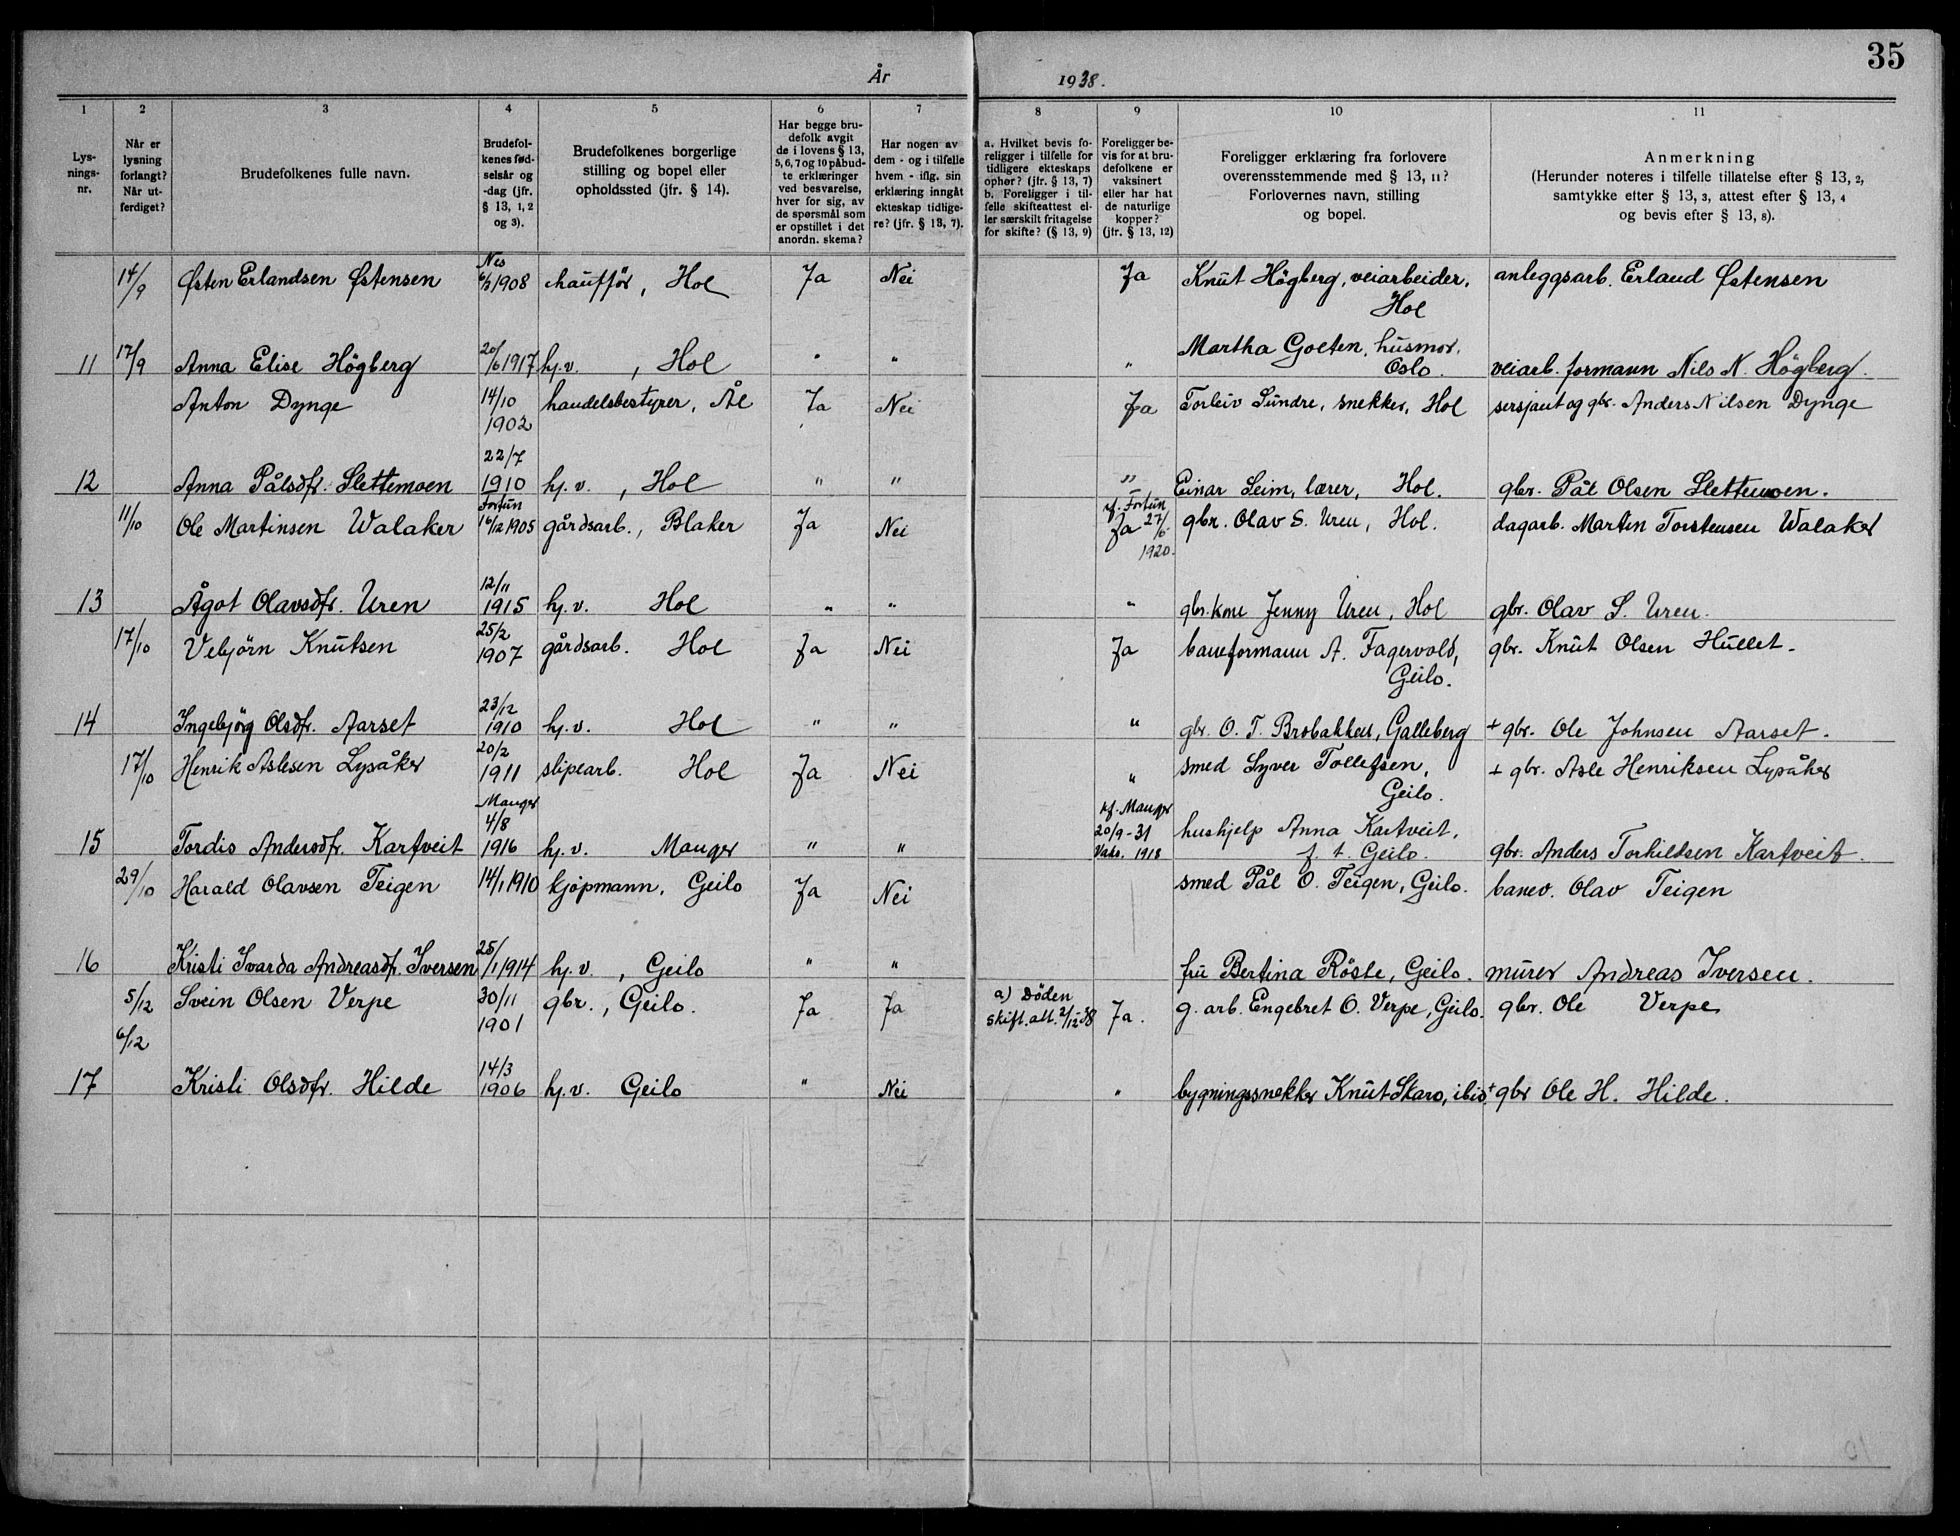 35
År 1938.
1 2 3 4 5 6 7 8 9 10 11
Lys-
nings-
nr.
Når er
lysning
forlangt?
Når ut-
ferdiget?
Brudefolkenes fulle navn.
Brudefol-
kenes fød-
selsår og
-dag (jfr.
§ 13, 1, 2
og 3).
Brudefolkenes borgerlige
stilling og bopel eller
opholdssted (jfr. § 14).
Har begge bru-
defolk avgit
de i lovens § 13,
5, 6, 7 og 10 påbud-
te erklæringer
ved besvarelse,
hver for sig, av
de spørsmål som
er opstillet i det
anordn. skema?
Har nogen av
dem - og i tilfelle
hvem - iflg. sin
erklæring inngåt
ekteskap tidlige-
re? (jfr. § 13, 7).
a. Hvilket bevis fo-
religger i tilfelle for
tidligere ekteskaps
ophør? (jfr. § 13, 7)
b. Foreligger i til-
felle skifteattest el-
ler særskilt fritagelse
for skifte? (§ 13, 9)
Foreligger be-
vis for at bru-
defolkene er
vaksinert
eller har hat
de naturlige
kopper?
(jfr. § 13, 12)
Foreligger erklæring fra forlovere
overensstemmende med § 13, 11?
Forlovernes navn, stilling
og bopel.
Anmerkning
(Herunder noteres i tilfelle tillatelse efter § 13, 2,
samtykke efter § 13, 3, attest efter § 13, 4
og bevis efter § 13, 8).
Nes
14/9 Østen Erlandsen Østensen 1908 chauffør, Hol Ja Nei Ja Knut Högberg, veiarbeider, anleggsarb. Erland Østensen
Hol
Martha Goeten, husmor,
11 17/9 Anna Elise Högberg 20/6 1917 hj.v. , Hol " " " Oslo. veiarb. formann Nils N. Högberg.
Anton Dynge 14/10 handelsbestyrer, Ål Ja Nei Ja Torleiv Sundre, snekker, Hol sersjant og gbr. Anders Nilsen Dynge
1902
22/7
12 Anna Pålsdfr. Slettemoen 1910 hj.v. , Hol " " " Einar Seim, lærer, Hol. gbr. Pål Olsen Slettemoen.
Fortun
kf. Fortun
11/10 Ole Martinsen Walaker 16/12 1905 gårdsarb., Blaker Ja Nei Ja 27/6 gbr. Olav S. Uren, Hol. dagarb. Martin Torstensen Walaker
1920.
12/11
13 Ågot Olavsdfr. Uren 1915 hj.v. Hol " " " gbr. kone Jenny Uren, Hol gbr. Olav S. Uren.
25/2
17/10 Vebjörn Knutsen 1907 gårdsarb. Hol Ja Nei Ja baneformann A. Fagervold, gbr. Knut Olsen Hullet.
Geilo.
23/12
14 Ingebjörg Olsdfr. Aarset 1910 hj.v. Hol " " " gbr. O. T. Brobakken, Galleberg + gbr. Ole Johnsen Aarset.
20/2
17/10 Henrik Aslesen Lysåker 1911 slipearb. Hol Ja Nei " smed Syver Tollefsen, + gbr. Asle Henriksen Lysåker
Geilo.
Manger
kf. Manger
4/8 20/9-31 hushjelp Anna Kartveit,
15 Tordis Andersdfr. Kartveit 1916 hj.v. Manger " " Vaks. 1918 f. t. Geilo. gbr. Anders Torkildsen Kartveit.
29/10 Harald Olavsen Teigen 14/1 1910 kjöpmann, Geilo Ja Nei smed Pål O. Teigen, Geilo. banev. Olav Teigen
16 Kristi Ivarda Andreasdfr. Iversen 25/1 1914 hj.v. , Geilo " " fru Bertina Röste, Geilo. murer Andreas Iversen.
5/12 Svein Olsen Verpe 30/11 gbr., Geilo. Ja Ja a) Döden Ja. g. arb. Engebret O. Verpe, Geilo. gbr. Ole Verpe
1901 skift. att. 2/12 38
6/12
14/3
17 Kristi Olsdfr. Hilde 1906 hj.v. Geilo " Nei " bygningssnekker Knut Skaro, ibid. + gbr Ole H. Hilde.